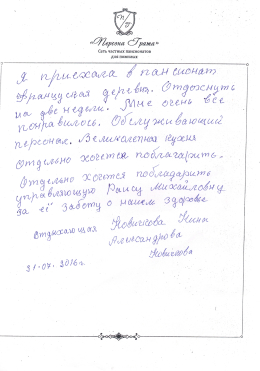 «Персона Грата»
Сеть частных пансионатов
для пожилых
Я приехала в пансионат
Французская деревня. Отдохнуть
на две недели. Мне очень все
понравилось. Обслуживающий
персонал. Великолепная кухня
Отдельно хочется поблагодарить
управляющую Раису Михайловну
за её заботу о нашем здоровье
отдыхающая Нина
Александровна
21.07.2016г.